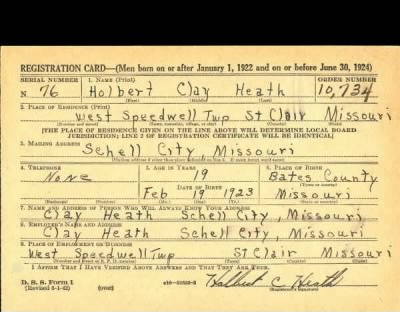 REGISTRATION CARD—(Men born on or after January 1, 1922 and on or before June 30, 1924)
SERIAL NUMBER 1. NAME (Print) ORDER NUMBER
N 76 Holbert Clay Heath 10,734
(First) (Middle) (Last)
2. PLACE OF RESIDENCE (Print)
West Speedwell Twp St Clair Missouri
(Number and street) (Town, township, village, or city) (County) (State)
[THE PLACE OF RESIDENCE GIVEN ON THE LINE ABOVE WILL DETERMINE LOCAL BOARD
JURISDICTION; LINE 2 OF REGISTRATION CERTIFICATE WILL BE IDENTICAL]
3. MAILING ADDRESS
Schell City Missouri
[Mailing address if other than place indicated on line 2. If same insert word same]
4. TELEPHONE 5. AGE IN YEARS 6. PLACE OF BIRTH
None 19 Bates County
DATE OF BIRTH (Town or county)
Feb 19 1923 Missouri
(Mo.) (Day) (Yr.) (State or country)
7. NAME AND ADDRESS OF PERSON WHO WILL ALWAYS KNOW YOUR ADDRESS
Clay Heath Schell City, Missouri
8. EMPLOYER'S NAME AND ADDRESS
Clay Heath Schell City, Missouri
9. PLACE OF EMPLOYMENT OR BUSINESS
West Speedwell Twp St Clair Missouri
(Number and street or R. F. D. number) (Town) (County) (State)
I AFFIRM THAT I HAVE VERIFIED ABOVE ANSWERS AND THAT THEY ARE TRUE.
D. S. S. Form 1
(Revised 6-1-42) (over) Holbert C Heath
(Registrant's signature)